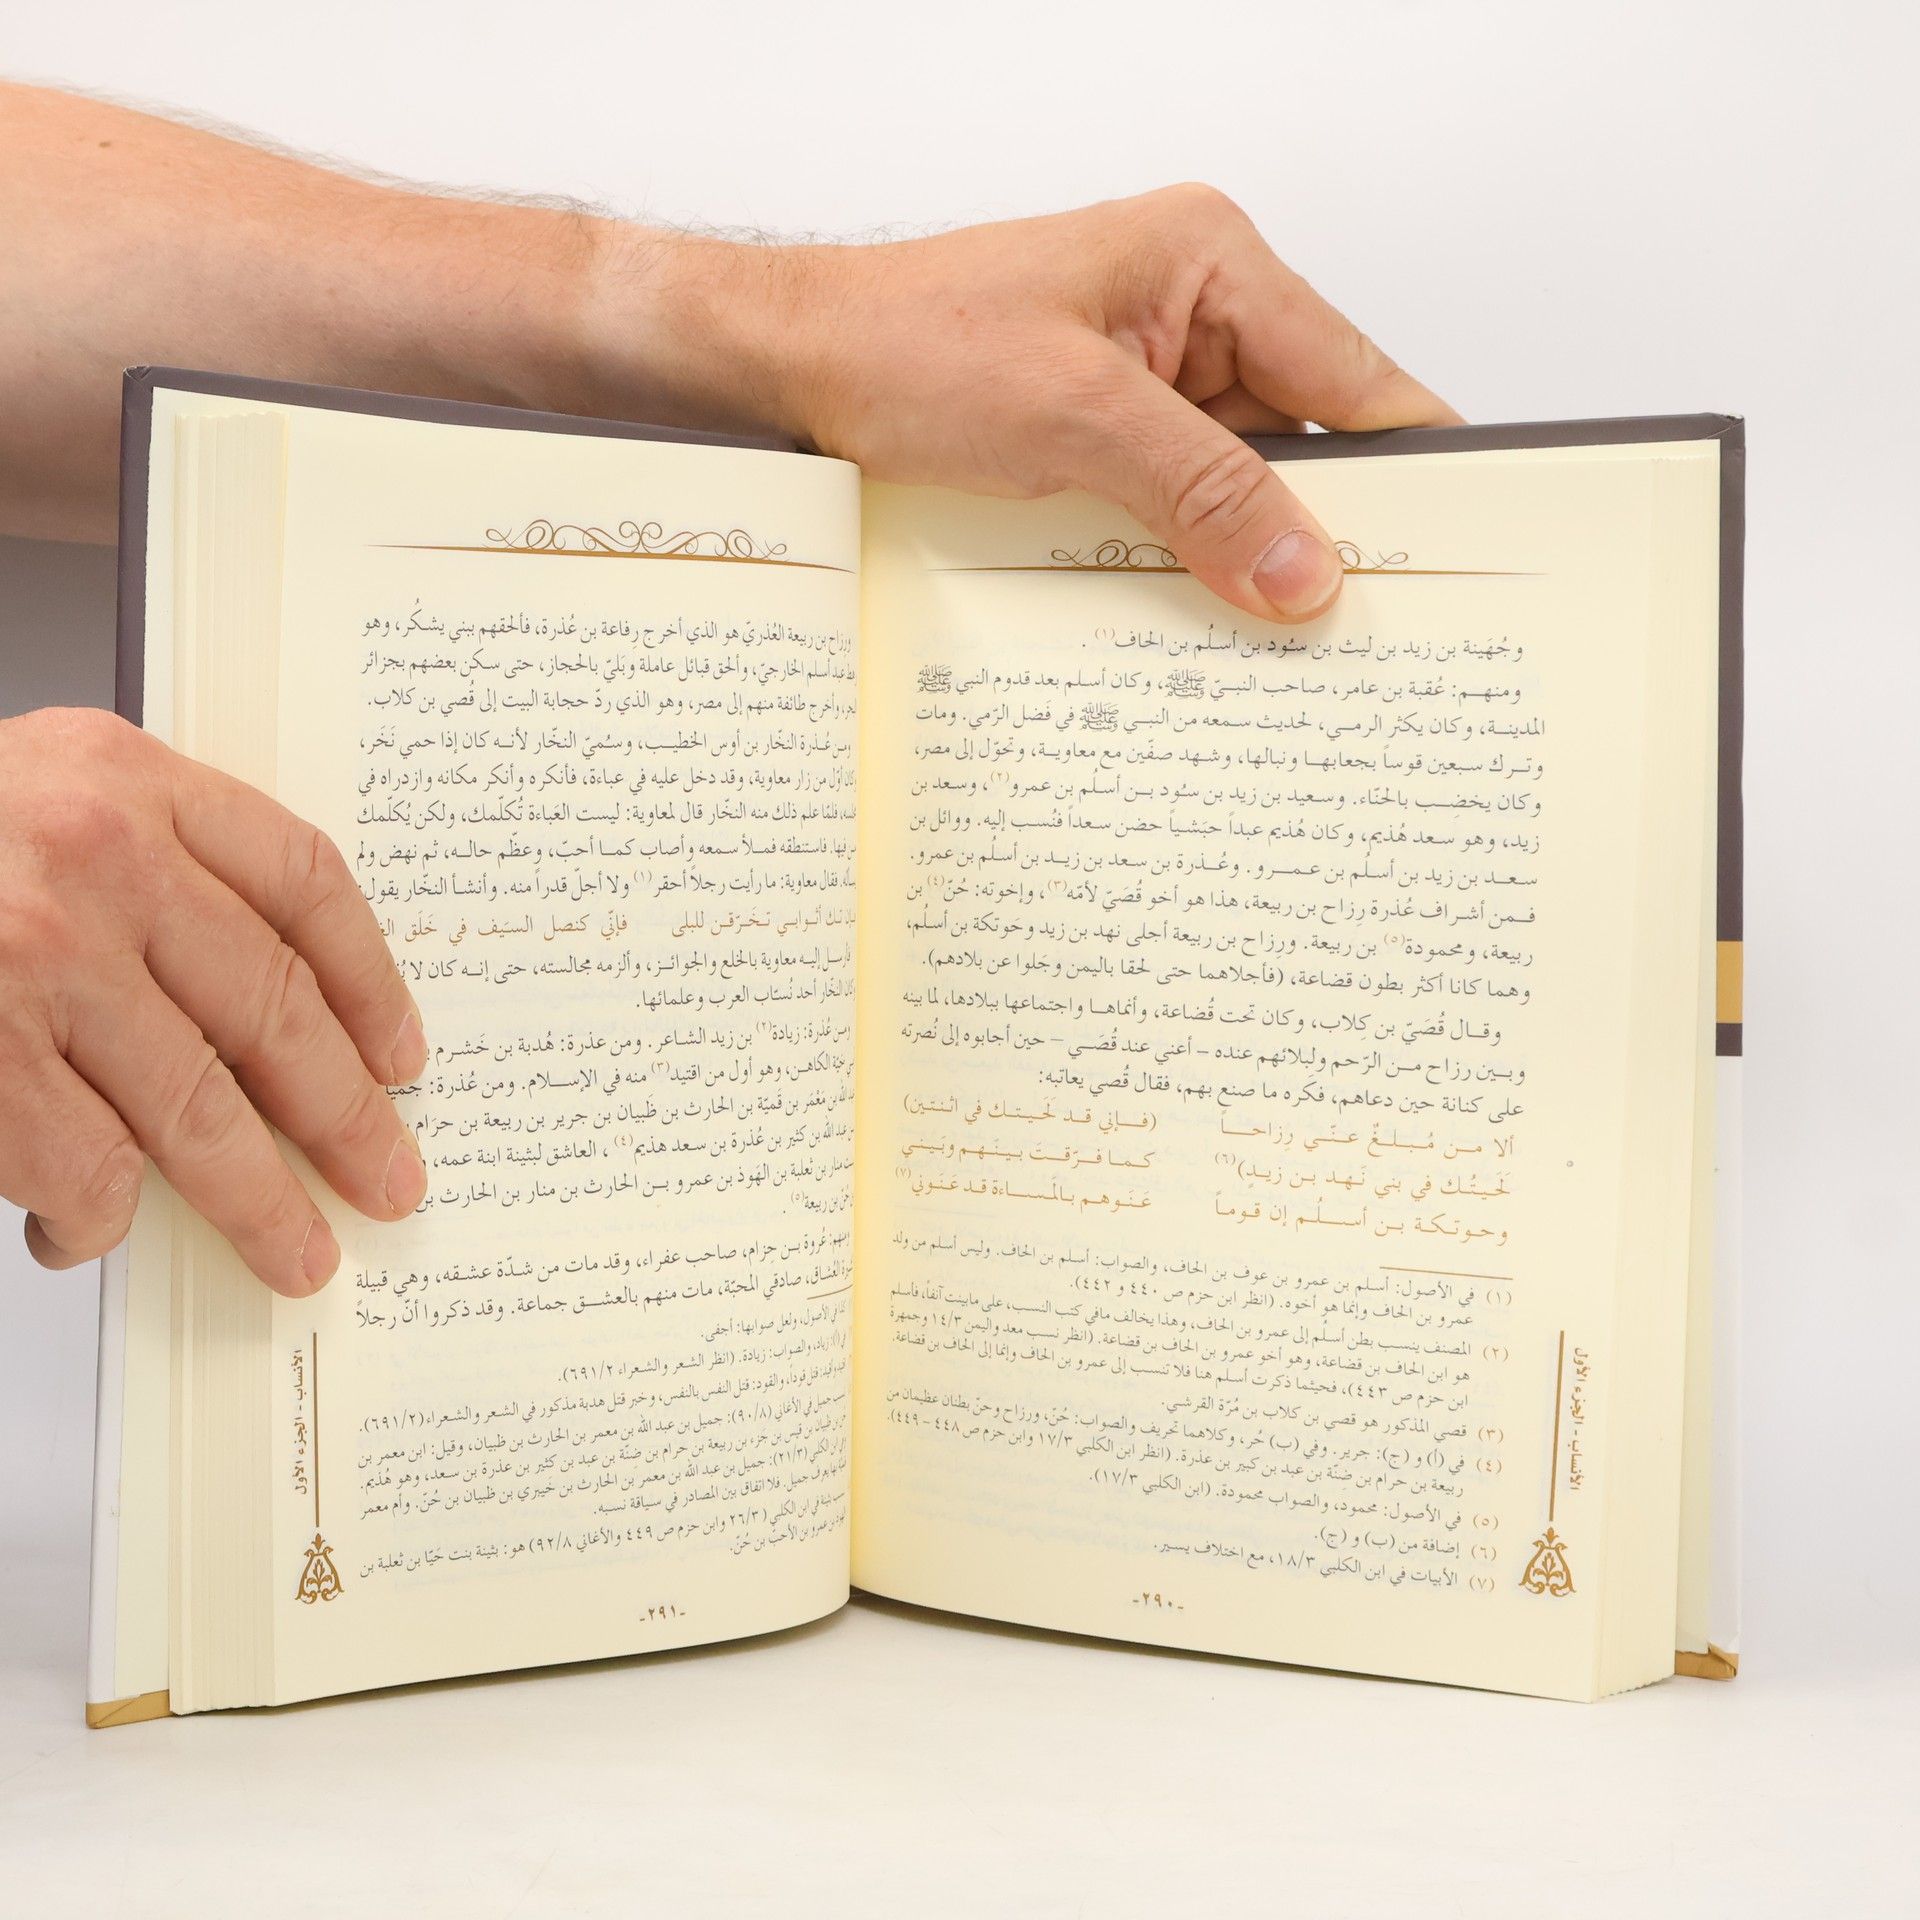 وجُهَينة بن زيد بن ليث بن سُود بن أسلُم بن الحاف(١).
ومنهم: عُقبة بن عامر، صاحب النبيّ ﷺ، وكان أسلم بعد قدوم النبي ﷺ
المدينة، وكان يكثر الرمي، لحديث سمعه من النبي ﷺ في فَضل الرّمي. ومات
وترك سبعين قوساً بجعابها ونبالها، وشهد صفّين مع معاوية، وتحوّل إلى مصر،
وكان يخضِب بالحنّاء. وسعيد بن زيد بن سُود بن أسلُم بن عمرو(٢)، وسعد بن
زيد، وهو سعد هُذيم، وكان هُذيم عبداً حبَشياً حضن سعداً فنُسب إليه. ووائل بن
سعد بن زيد بن أسلُم بن عمرو. وعُذرة بن سعد بن زيد بن أسلُم بن عمرو.
فمن أشراف عُذرة رِزاح بن ربيعة، هذا هو أخو قُصَيّ لأمّه(٣)، وإخوته: حُنّ(٤) بن
ربيعة، ومحمودة(٥) بن ربيعة. ورِزاح بن ربيعة أجلى نهد بن زيد وحَوتكة بن أسلُم،
وهما كانا أكثر بطون قضاعة، (فأجلاهما حتى لحقا باليمن وجَلوا عن بلادهم).
وقال قُصَيّ بن كِلاب، وكان تحت قُضاعة، وأنماها واجتماعها ببلادها، لما بينه
وبين رزاح من الرّحم ولبلائهم عنده – أعني عند قُصَي – حين أجابوه إلى نُصرته
على كنانة حين دعاهم، فكَره ما صنع بهم، فقال قُصي يعاتبه:
ألا من مُبلغٌ عنّي رِزاحاً (فإني قد لَحَيتك في اثنتين)
لَحَيتُك في بني نَهد بن زيدٍ)(٦) كما فرّقتَ بينَهم وبَيني
وحوتكة بن أسلُم إن قوماً عَنَوهم بالمَساءة قد عَنَوني(٧)
(١) في الأصول: أسلم بن عمرو بن عوف بن الحاف، والصواب: أسلم بن الحاف. وليس أسلم من ولد
عمرو بن الحاف وإنما هو أخوه. (انظر ابن حزم ص ٤٤٠ و ٤٤٢).
(٢) المصنف ينسب بطن أسلُم إلى عمرو بن الحاف، وهذا يخالف مافي كتب النسب، على مابينت آنفاً، فأسلم
هو ابن الحاف بن قضاعة، وهو أخو عمرو بن الحاف بن قضاعة. (انظر نسب معد واليمن ١٤/٣ وجمهرة
ابن حزم ص ٤٤٣)، فحيثما ذكرت أسلم هنا فلا تنسب إلى عمرو بن الحاف وإنما إلى الحاف بن قضاعة.
(٣) قصي المذكور هو قصي بن كلاب بن مُرّة القرشي.
(٤) في (أ) و (ج): جرير. وفي (ب) حُر، وكلاهما تحريف والصواب: حُنّ، ورزاح وحنّ بطنان عظيمان من
ربيعة بن حرام بن ضِنّة بن عبد بن كبير بن عذرة. (انظر ابن الكلبي ١٧/٣ وابن حزم ص ٤٤٨ - ٤٤٩).
(٥) في الأصول: محمود، والصواب محمودة. (ابن الكلبي ١٧/٣).
(٦) إضافة من (ب) و (ج).
(٧) الأبيات في ابن الكلبي ١٨/٣، مع اختلاف يسير.
الأنساب - الجزء الأول
-٢٩٠-
ورزاح بن ربيعة العُذريّ هو الذي أخرج رِفاعة بن عُذرة، فألحقهم ببني يشكُر، وهو
عبد أسلم الخارجيّ، وألحق قبائل عاملة وبَليّ بالحجاز، حتى سكن بعضهم بجزائر
وأخرج طائفة منهم إلى مصر، وهو الذي ردّ حجابة البيت إلى قُصي بن كلاب.
ومن عُذرة النخّار بن أوس الخطيب، وسُميّ النخّار لأنه كان إذا حمي نَخَر،
وكان أوّل من زار معاوية، وقد دخل عليه في عباءة، فأنكره وأنكر مكانه وازدراه في
فلمّا علم ذلك منه النخّار قال لمعاوية: ليست العَباءة تُكلّمك، ولكن يُكلّمك
من فيها. فاستنطقه فملأ سمعه وأصاب كما أحبّ، وعظّم حاله، ثم نهض ولم
فقال معاوية: ما رأيت رجلاً أحقر(١) ولا أجلّ قدراً منه. وأنشأ النخّار يقول:
تك أثوابي تخرّقن للبلى فإنّي كنصل السيَف في خَلَق
فأرسل إليه معاوية بالخلع والجوائز، وألزمه مجالسته، حتى إنه كان لا
وكان النخّار أحد نُسّاب العرب وعلمائها.
ومن عُذرة: زيادة(٢) بن زيد الشاعر. ومن عذرة: هُدبة بن خَشرم
الكاهن، وهو أول من اقتيد(٣) منه في الإسلام. ومن عُذرة:
الله بن مَعْمَر بن قَميّة بن الحارث بن ظَبيان بن جرير بن ربيعة بن حرَام
بن عبد الله بن كثير بن عُذرة بن سعد هذيم(٤)، العاشق لبثينة ابنة عمه،
منار بن ثعلبة بن الهَوذ بن عمرو بن الحارث بن منار بن الحارث بن
حُنّ بن ربيعة(٥).
ومنهم: عُروة بن حِزام، صاحب عفراء، وقد مات من شدّة عشقه، وهي قبيلة
العُشّاق، صادقي المحبّة، مات منهم بالعشق جماعة. وقد ذكروا أنّ رجلاً
في الأصول، ولعل صوابها: أجفى.
زياد، والصواب: زيادة. (انظر الشعر والشعراء ٦٩١/٢).
قتل قوداً، والقود: قتل النفس بالنفس، وخبر قتل هدبة مذكور في الشعر والشعراء (٦٩١/٢).
جميل في الأغاني (٩٠/٨): جميل بن عبد الله بن معمر بن الحارث بن ظبيان، وقيل: ابن معمر بن
ظبيان بن قيس بن جَزء بن ربيعة بن حرام بن ضِنّة بن عبد بن كثير بن عذرة بن سعد، وهو هُذيم.
ابن الكلبي (٢١/٣): جميل بن عبد الله بن معمر بن الحارث بن خَيبري بن ظبيان بن حُنّ. وأم معمر
يعرف جميل. فلا اتفاق بين المصادر في سياقة نسبه.
بثينة في ابن الكلبي (٢٦/٣ وابن حزم ص ٤٤٩ والأغاني ٩٢/٨) هو: بثينة بنت حَبّا بن ثعلبة بن
بن عمرو بن الأحبّ بن حُنّ.
الأنساب - الجزء الأول
-٢٩١-